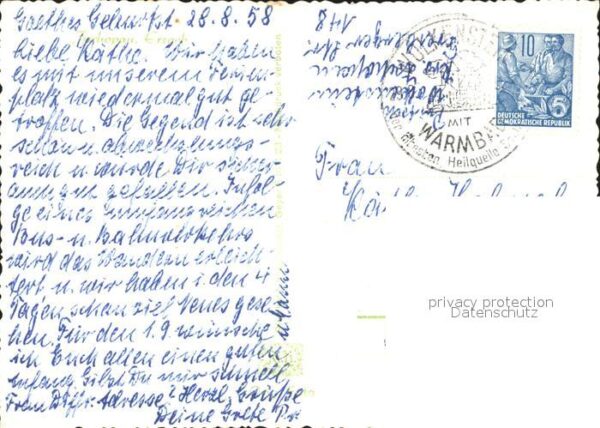 Goethes Geburtst. 28.8.58
Liebe Käthe. Wir haben
es mit unserem Ferien-
platz wiedermal gut ge-
troffen. Die Gegend ist sehr
schön u. abwechslungs-
reich u. würde Dir sicher
auch gut gefallen. Infol-
ge eines umfangreichen
Bus- u. Bahnverkehrs
wird das Wandern erleich-
tert u. wir haben i. den 4
Tagen schon viel Neues gese-
hen. Für den 1.9 wünsche
ich Euch allen einen guten
Anfang. Gibst Du mir schnell
Frau Adresse? Herzl. Grüße
Deine Grete
u. Mann
Zschopau, Erzgeb.
148
MIT
WARMBAD
Heilquelle
10
5
DEUTSCHE
DEMOKRATISCHE REPUBLIK
Frau
privacy protection
Datenschutz